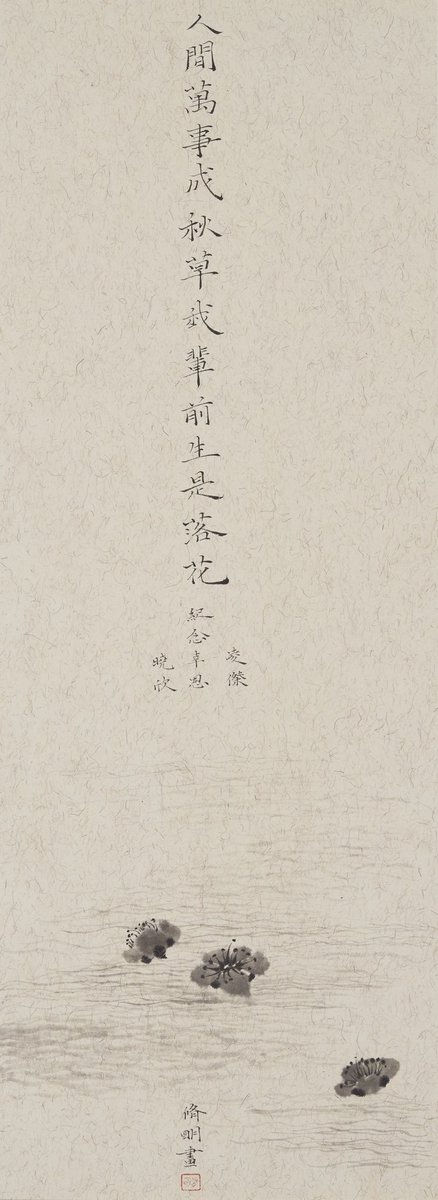 人間萬事成秋草我輩前生是落花
凌傑
紀念
曉欣
脩明畫